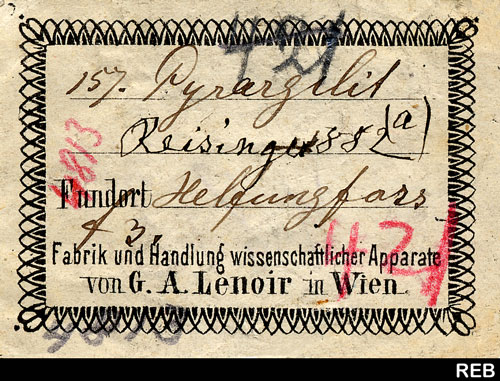 421
157. Pyrargilit
Reisinger 1882 (a)
Fundort Helsingfors
f 3.
421
Fabrik und Handlung wissenschaftlicher Apparate
von G. A. Lenoir in Wien.
REB